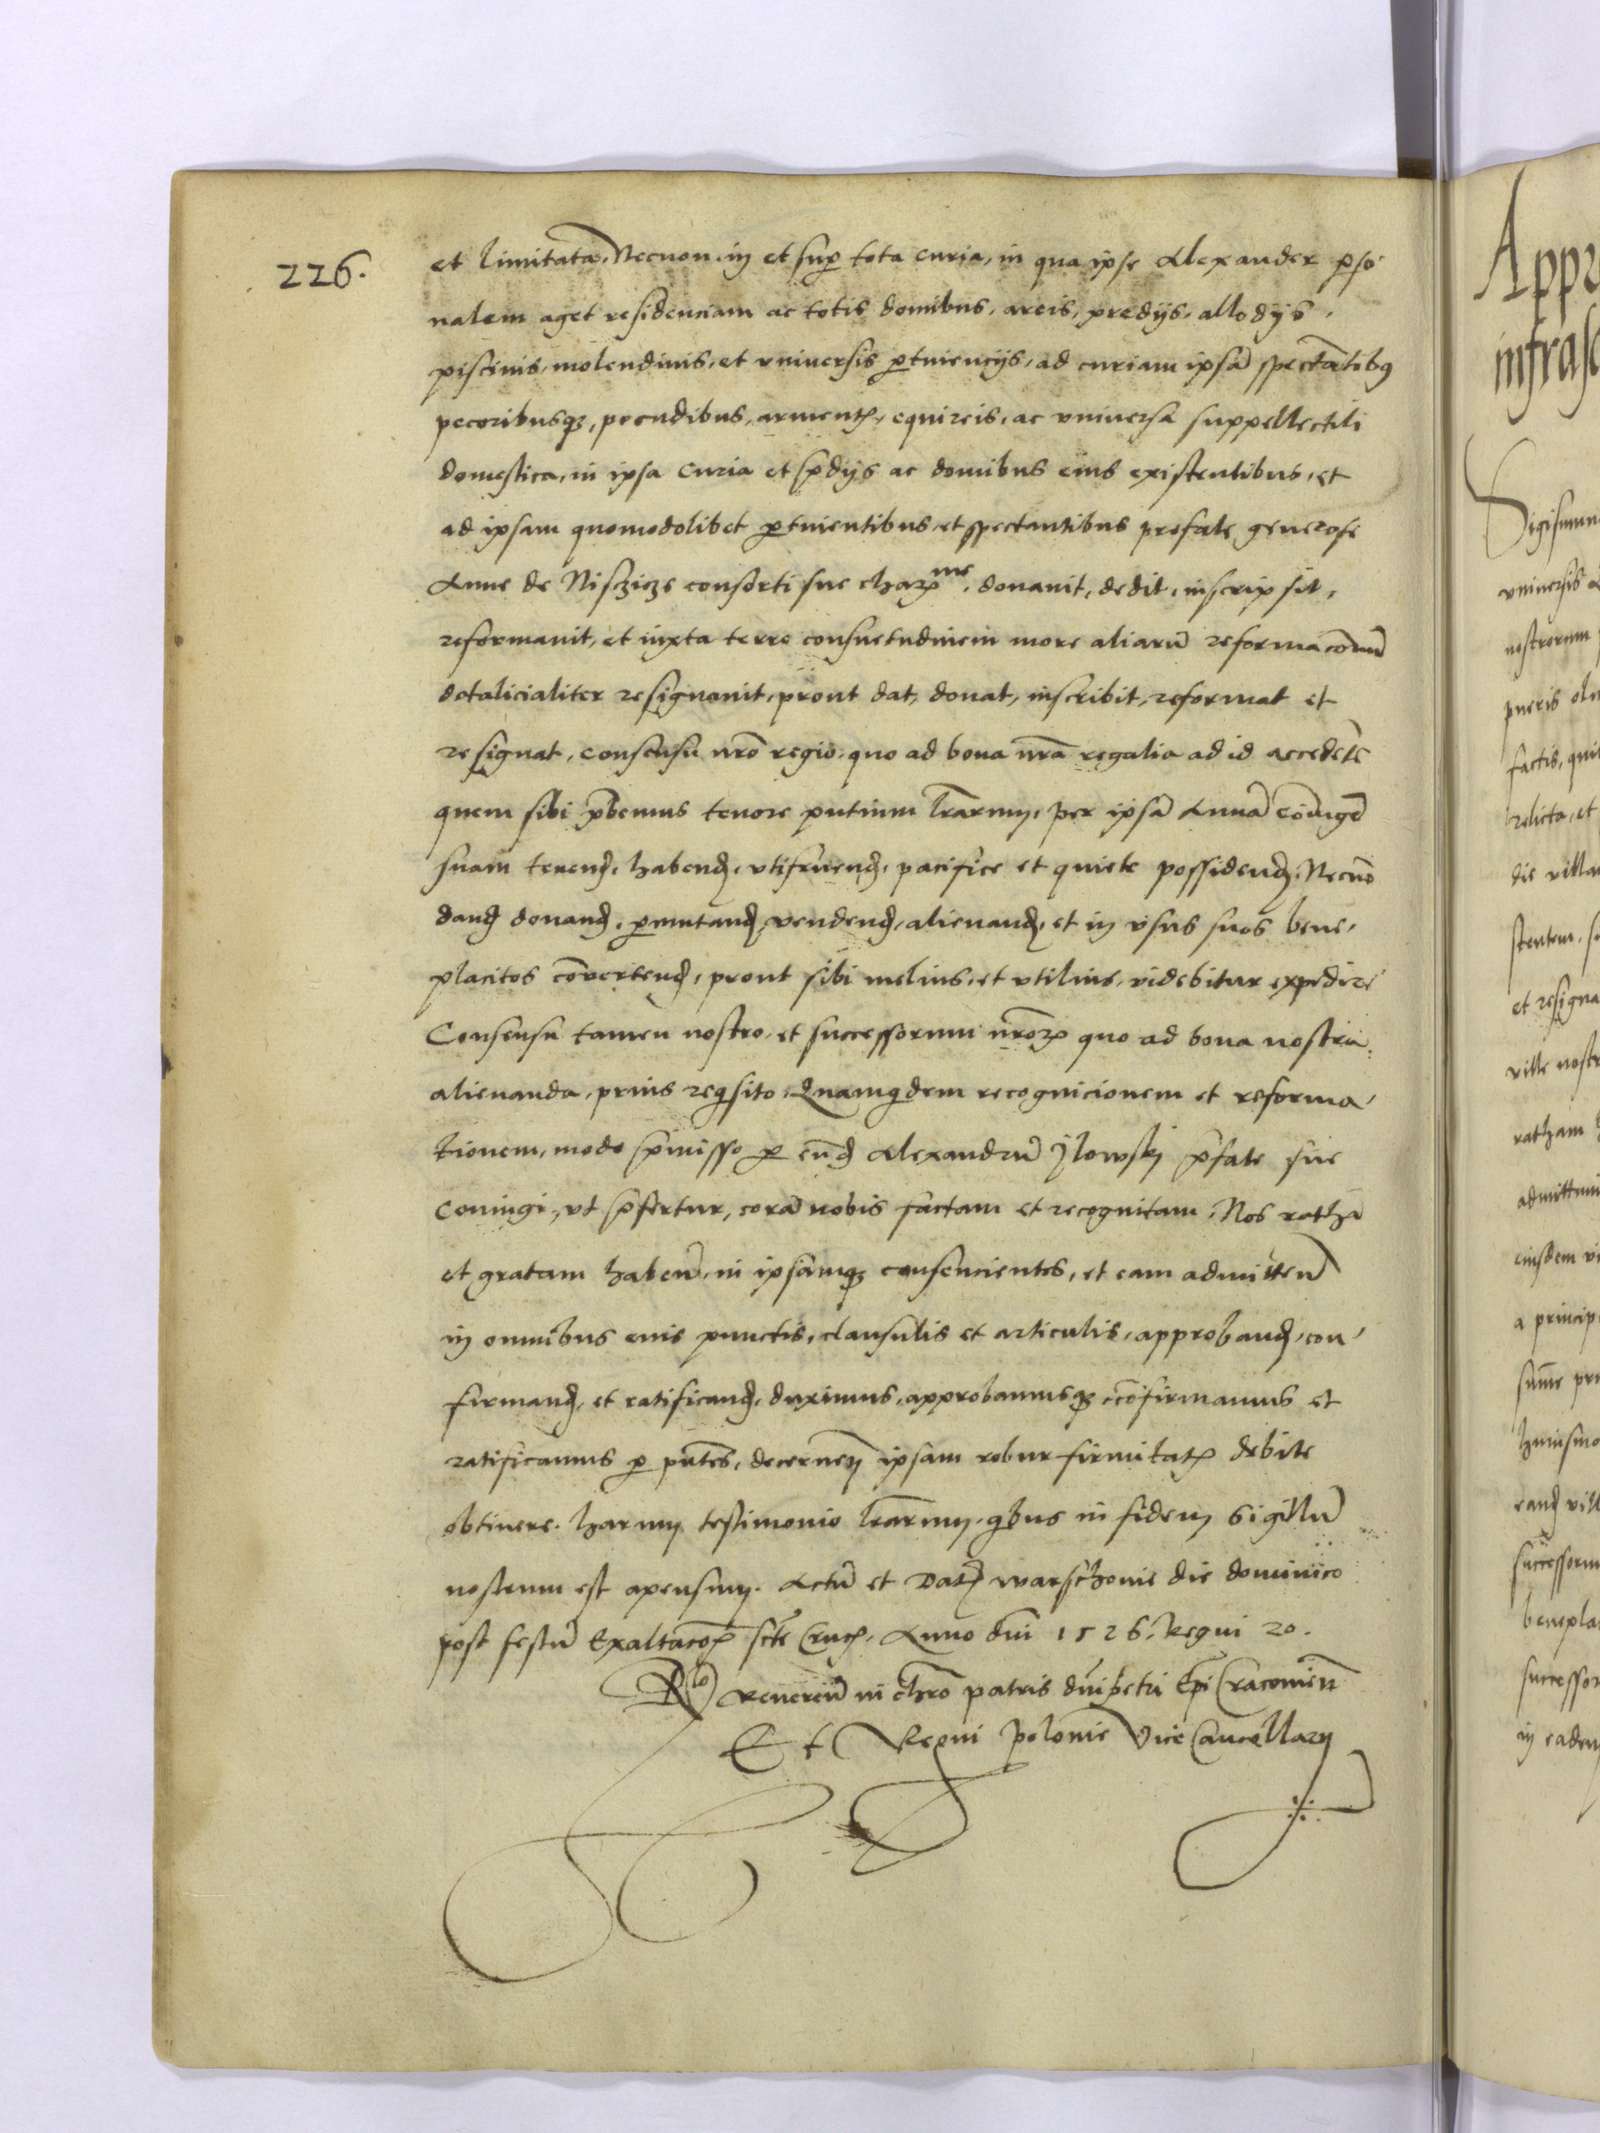 226.
et limitata. Necnon in et sup tota curia, in qua ipse Alexander pso
nalem aget residenciam ac totis domibus, areis, predijs, allodijs,
piscinis, molendinis, et vniuersis ptinencijs, ad curiam ipsā spectātibꝯ
pecoribusqꝫ, pecudibus, armentꝭ, equireis, ac vniuersa suppellectili
domestica, in ipsa curia et p̄dijs ac domibus eius existentibus, et
ad ipsam quomodolibet ptinentibus et spectantibus prefate generose
Anne de Nisczicze consorti sue charꝭme, donauit, dedit, inscripsit,
reformauit, et iuxta terre consuetudinem more aliarū reformacōnū
dotalicialiter resignauit, prout dat, donat, inscribit, reformat et
resignat, consensu nrō regio, quo ad bona nrā regalia ad id accedēte
quem sibi p̄bemus tenore pntium lrārum, per ipsā Annā cōiugē
suam tenenꝺ, habenꝺ, vtifruenꝺ, pacifice et quiete possidenꝺ, Necnō
danꝺ donanꝺ, pmutanꝺ vendenꝺ, alienanꝺ, et in vsus suos bene
placitos cōvertenꝺ, prout sibi melius, et vtilius, videbitur expedire
Consensu tamen nostro, et successorum nrōrꝭ quo ad bona nostra
alienanda, prius reqsito, Quamqdem recognicionem et reforma
tionem, modo p̄misso p eunꝺ Alexandrū Jlowskj p̄fate sue
coniugi, vt p̄fertur, corā nobis factam et recognitam, Nos rathā
et gratam habeñ, in ipsāmqꝫ consencientes, et eam admitteñ
in omnibus euis punctis, clausulis et articulis, approbanꝺ, con
firmanꝺ, et ratificanꝺ, duximus, approbamusqꝫ cōfirmamus et
ratificamus p pntēs, decerneñ ipsam robur firmitatꝭ debite
obtinere. harum testimonio lrārum, qbus in fidem Sigillū
nostrum est apensum. Actū et Datꝭ warschouie die dominico
post festū Exaltacōꝭ sctē Crucꝭ. Anno dnī 1526. Regni 20.
Rlo Reuereñ in chrō patris dnī petri Epī Cracouieñ
Et Regni polonie Vice Cancellarij
Appr
infrasc
Sigismun
vniuersis
nostrorum
pueris ol
factis, qui
relicta, et
die villa
stentem, s
et resigna
ville nost
ratham
admittim
eiusdem vi
a princip
summe pr
huiusmo
eanꝺ vill
successoru
benepla
successor
in eadem